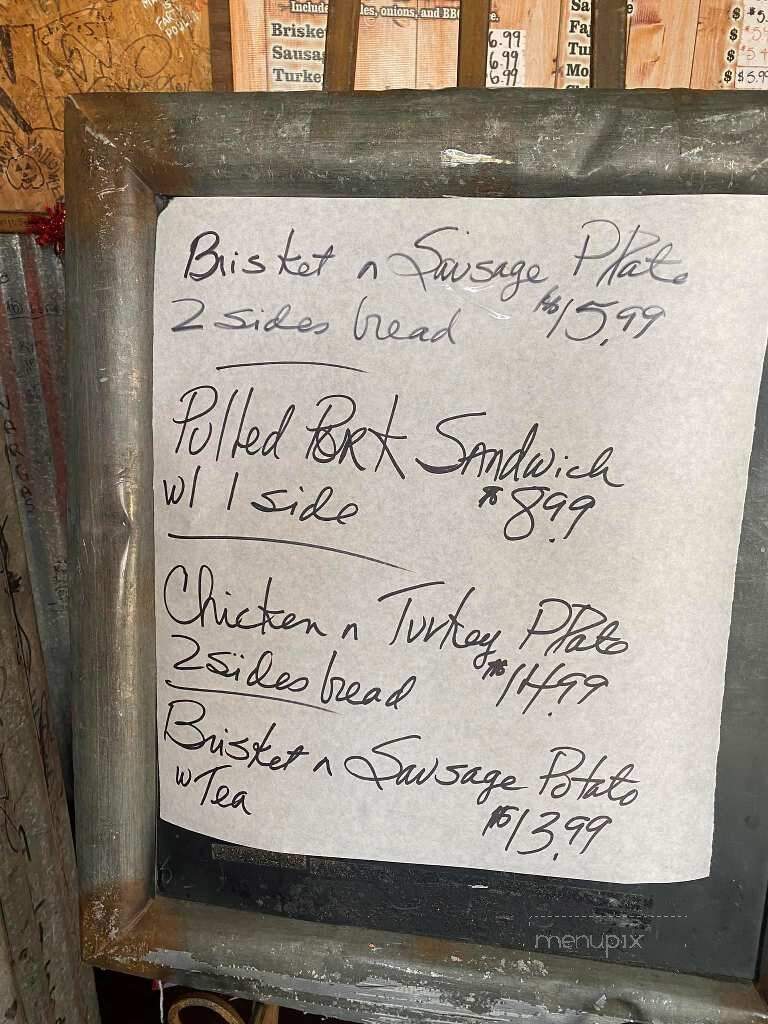 Include
les, onions, and BB
Briske
Sausa
Turke
6.99
6.99
6.99
Sa
Fa
Tu
Mo
$
$
$
$ $5.99
Brisket n Sausage Plate
2 sides bread $15.99
Pulled Pork Sandwich
w/ 1 side $8.99
Chicken n Turkey Plate
2 sides bread $14.99
Brisket n Sausage Potato
w Tea
$13.99
menupix